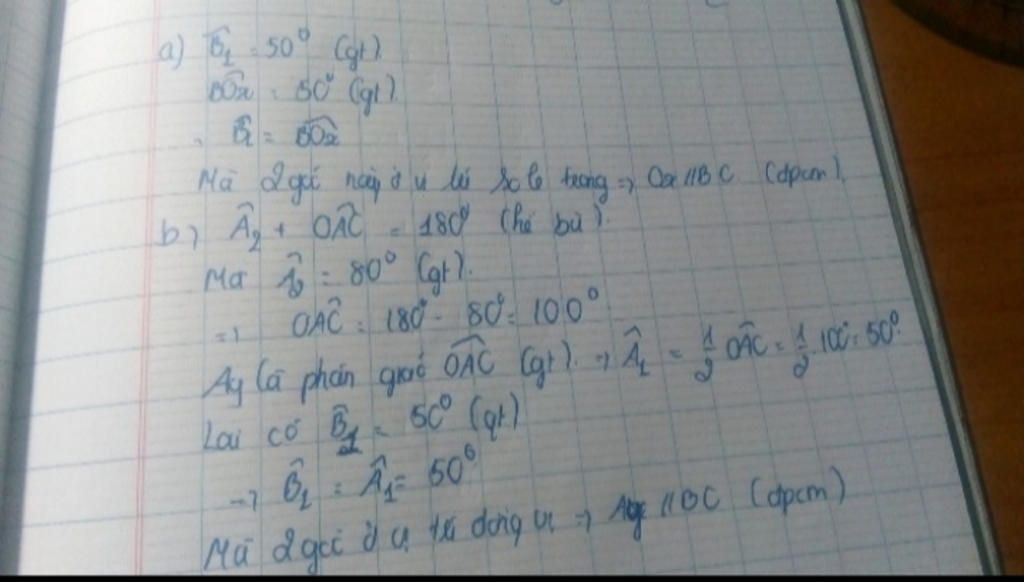 a) B̂₁ = 50° (gt).
BÔx = 50° (gt).
B̂₁ = BÔx
Mà 2 góc này ở vị trí so le trong => Ox // BC (đpcm).
b) Â₂ + OÂC = 180° (kề bù).
Mà Â₂ = 80° (gt).
=> OÂC = 180° - 80° = 100°
Ay là phân giác OÂC (gt). => Â₁ = 1/2 OÂC = 1/2 100° = 50°.
Lại có B̂₁ = 50° (gt)
=> B̂₁ = Â₁ = 50°
Mà 2 góc ở vị trí đồng vị => Ay // BC (đpcm)